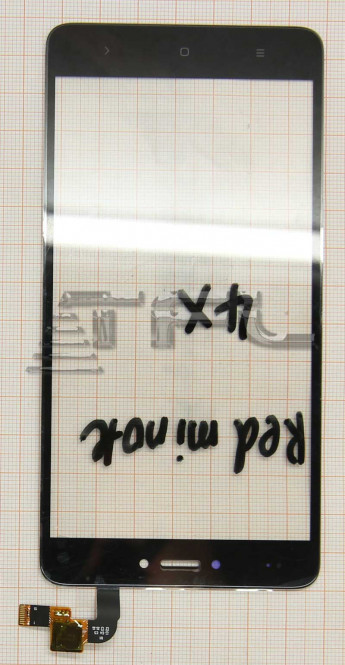 Red mi note
4X